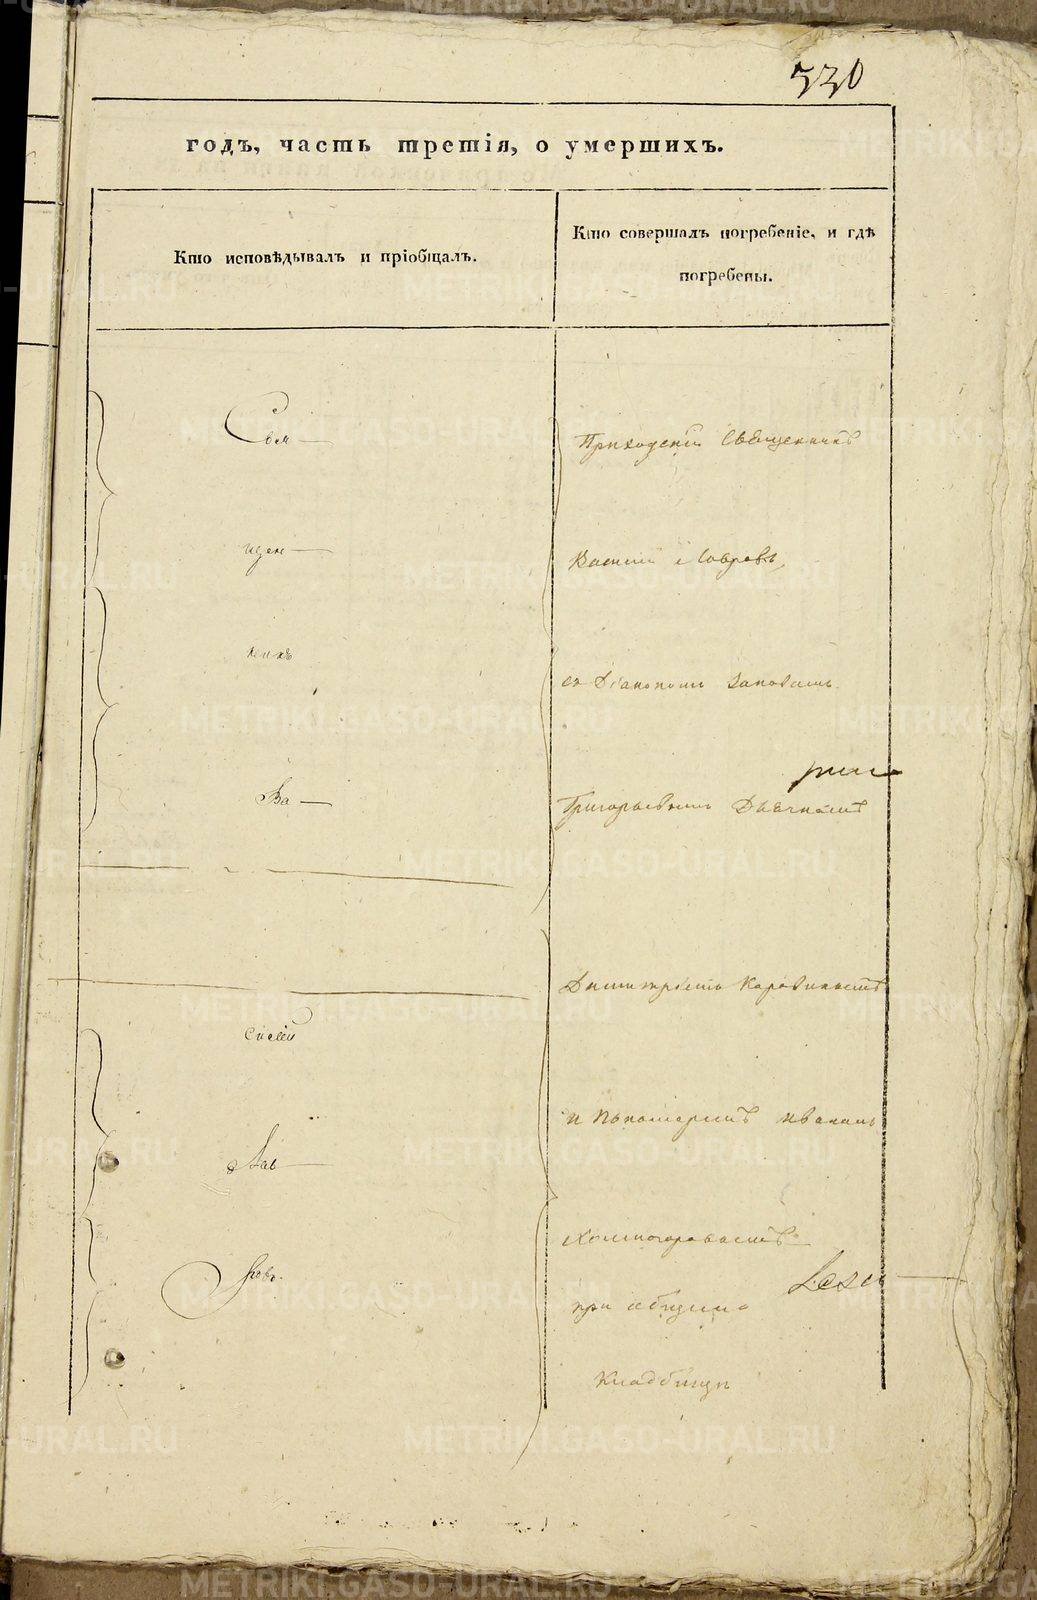 330
годъ, часть третія, о умершихъ.
Кто исповѣдывалъ и пріобщалъ.
Кто совершалъ погребеніе, и гдѣ
погребены.
Свя
щен
никъ
Ва
силій
Лав
ровъ.
Приходскій Священникъ
Василій Лавровъ,
съ Діакономъ
Григорьевымъ Дьячкомъ
Димитріемъ
и Пономаремъ Иваномъ
Холмогоровымъ
при общемъ
Кладбищѣ
METRIKI.GASO-URAL.RU